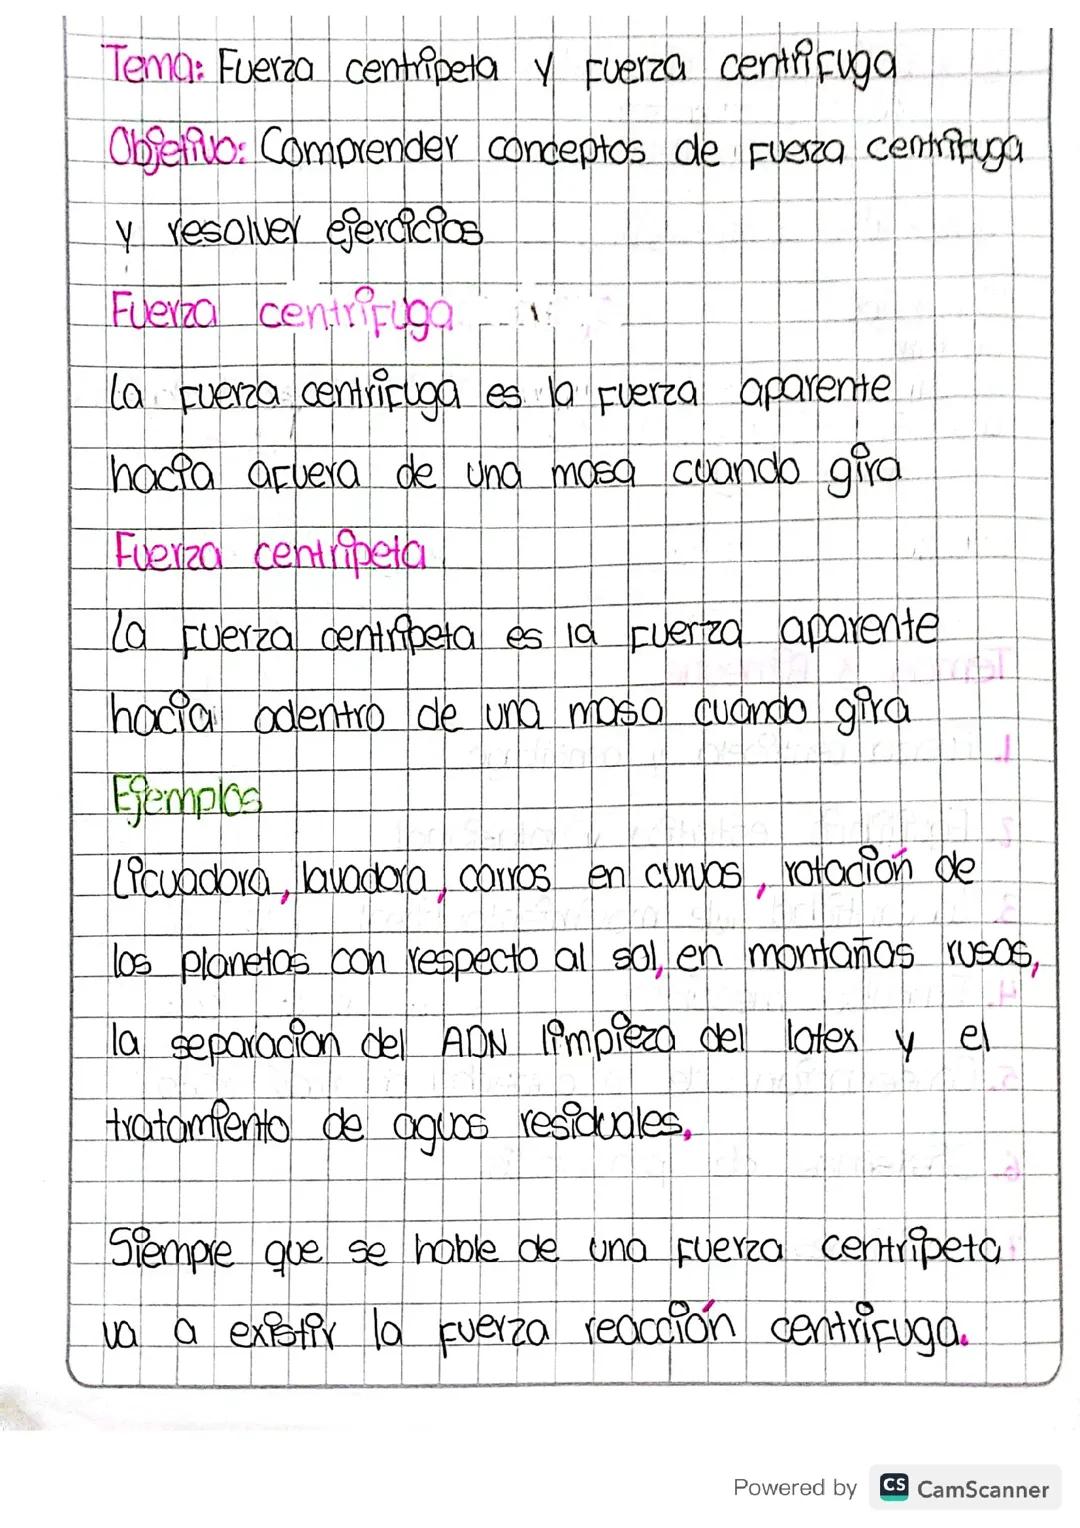 Tema: Fuerza centripeta y fuerza centrifuga
Objetivo: Comprender conceptos de fuerza centrifuga
y resolver ejercicios
Fuerza centrifuga
La fuerza centrifuga es la fuerza aparente
hacia afuera de una masa cuando gira
Fuerza centripeta
La fuerza centripeta es la fuerza aparente
hacia adentro de una masa cuando gira
Ejemplos
Licuadora, lavadora, carros en curvas, rotación de
los planetas con respecto al sol, en montañas rusas,
la separacion del ADN limpieza del latex y el
tratamiento de aguas residuales.
Siempre que se hable de una fuerza centripeta
va a existir la fuerza reacción centrifuga.
Powered by CS CamScanner